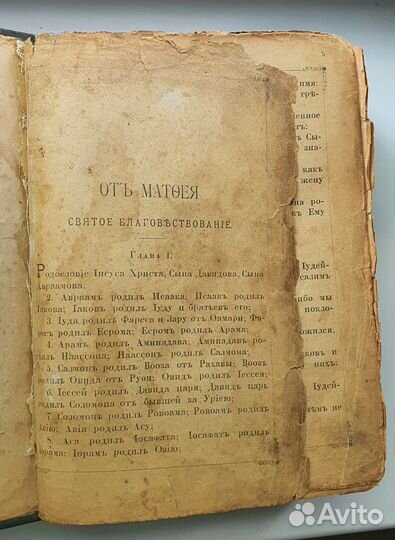 ОТЪ МАТѲЕЯ
СВЯТОЕ БЛАГОВѢСТВОВАНІЕ.
Глава I.
Родословіе Іисуса Христа, Сына Давидова, Сына
Авраамова.
2. Авраамъ родилъ Исаака; Исаакъ родилъ
Іакова; Іаковъ родилъ Іуду и братьевъ его;
3. Іуда родилъ Фареса и Зару отъ Ѳамари; Фа-
ресъ родилъ Есрома; Есромъ родилъ Арама;
4. Арамъ родилъ Аминадава; Аминадавъ ро-
дилъ Наассона; Наассонъ родилъ Салмона;
5. Салмонъ родилъ Вооза отъ Рахавы; Воозъ
родилъ Овида отъ Руѳи; Овидъ родилъ Іессея;
6. Іессей родилъ Давида царя; Давидъ царь
родилъ Соломона отъ бывшей за Уріею;
7. Соломонъ родилъ Ровоама; Ровоамъ родилъ
Авію; Авія родилъ Асу;
8. Аса родилъ Іосафата; Іосафатъ родилъ
Іорама; Іорамъ родилъ Озію;
5
имя:
грѣ-
отъ:
Сы-
зна-
какъ
жену
ро-
Ему
Іудей-
ибо мы
покло-
и
нихъ:
Іудей-
не
Avito